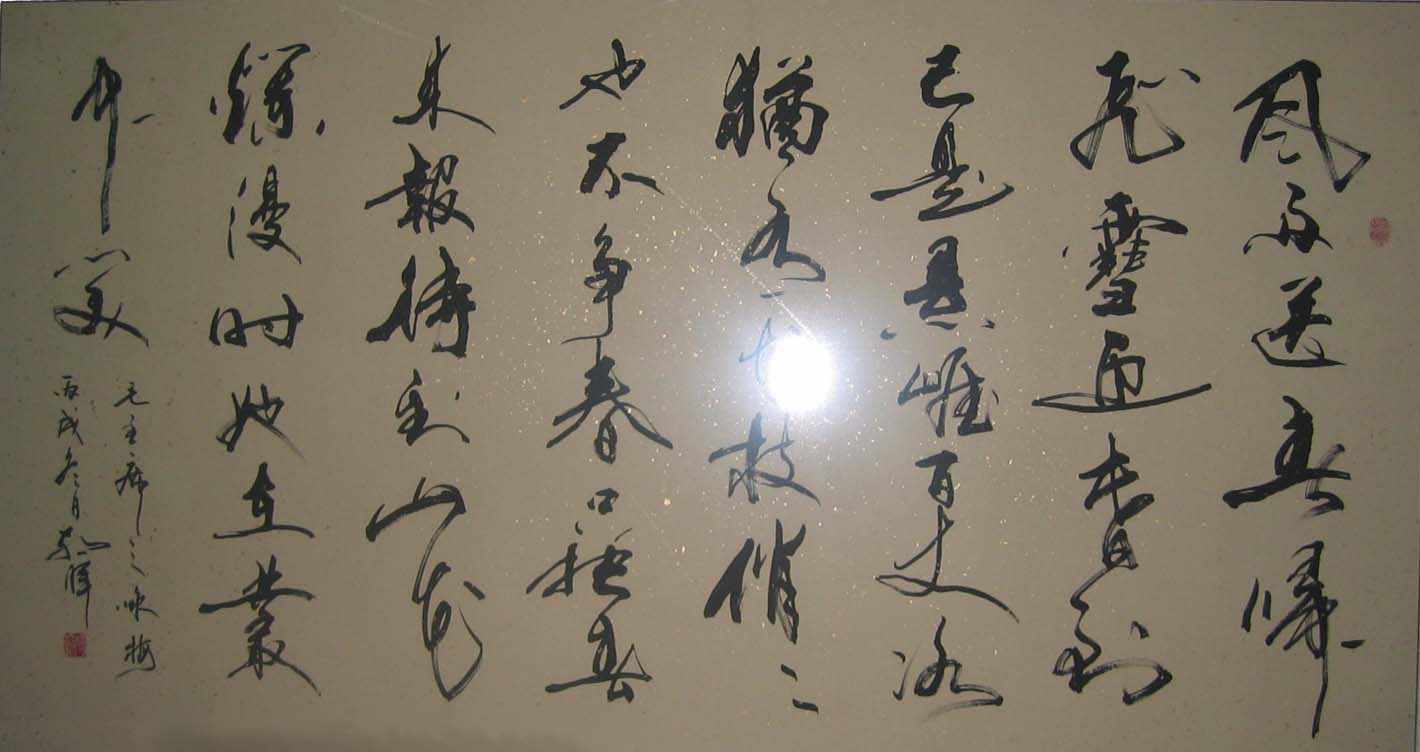 风雨送春歸
飛雪迎春到
已是悬崖百丈冰
猶有花枝俏々
也不争春只把春
来報待到山花
爛漫时她在叢
中笑
毛主席词咏梅
丙戌冬月